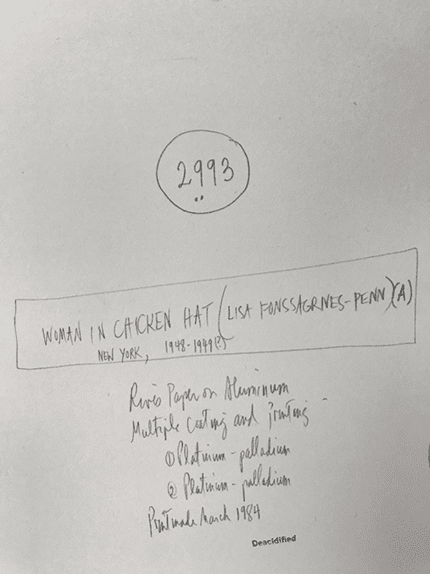 2993
WOMAN IN CHICKEN HAT (LISA FONSSAGRIVES-PENN)(A)
NEW YORK, 1948-1949(?)
Rives Paper on Aluminium
Multiple coating and printing -
① Platinum-palladium
② Platinum-palladium
Print made March 1984
Deacidified